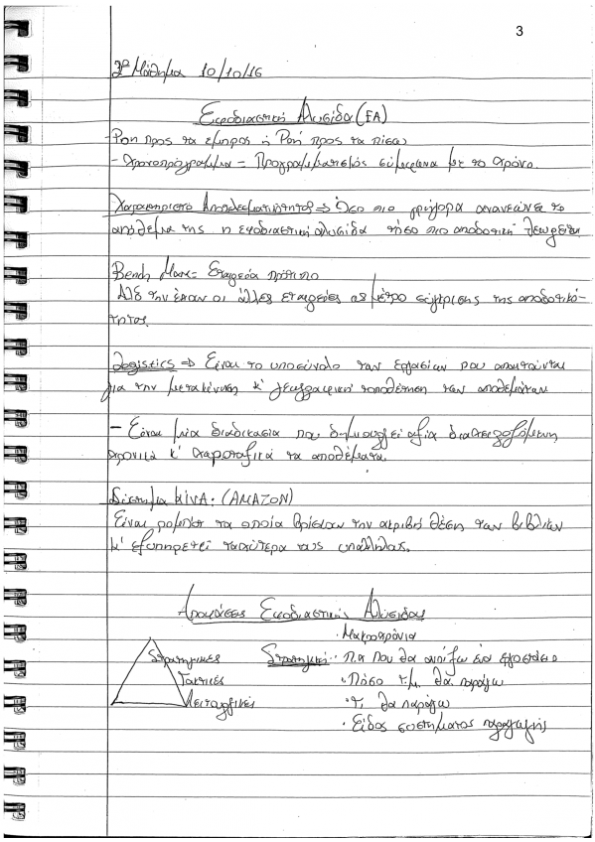 3
2ο Μάθημα 10/10/16
Εφοδιαστική Αλυσίδα (ΕΑ)
Ροή προς τα εμπρος ή Ροή προς τα πίσω
- Χρονοπρόγραμμα = Προγραμματισμός σύμφωνα με το χρόνο.
Χαρακτηριστο Αποτελεσματικότητας => Όσο πιο γρήγορα ανανεώνει το
απόθεμα της η εφοδιαστική αλυσίδα τόσο πιο αποδοτική θεωρείται
Bench Mark = Εταιρεία πρότυπο
Αλλ την έχουν οι άλλες εταιρείες ως μέτρο σύγκρισης της αποδοτικό-
τητας.
Logistics => Είναι το υποσύνολο των εργασιών που απαιτούνται
για την μετακίνηση κ' γεωγραφική τοποθέτηση των αποθεμάτων
- Είναι μία διαδικασία που δημιουργεί αξία
χρονικά κ' χωροταξικά τα αποθέματα.
Σύστημα KIVA: (AMAZON)
Είναι ρομποτ τα οποία βρίσκουν την ακριβή θέση των βιβλίων
κ' εξυπηρετεί ταχύτερα τους υπαλλήλους.
Αποφάσεις Εφοδιαστικής Αλυσίδας
· Μακροχρόνια
Στρατηγικες Στρατηγική · Πχ που θα ανοίξω ένα εργοστάσιο
Τακτικές · Πόσο τ.μ. θα παράγω
Λειτουργικές · Τι θα παράγω
· Είδος συστήματος παραγωγής